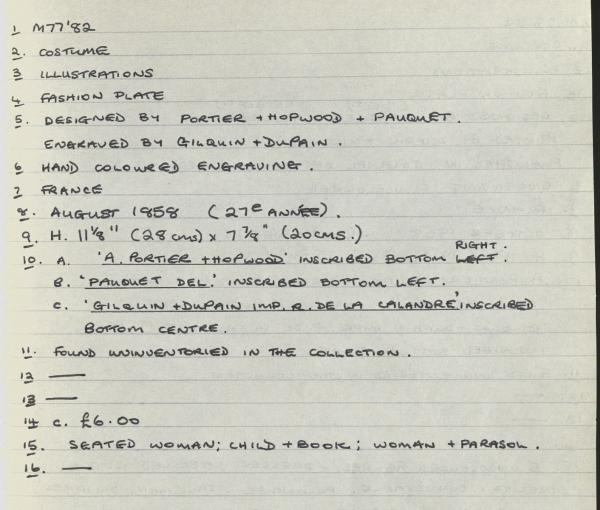 1 M77'82
2. COSTUME
3 ILLUSTRATIONS
4 FASHION PLATE
5. DESIGNED BY PORTIER + HOPWOOD + PAUQUET.
ENGRAVED BY GILQUIN + DUPAIN.
6 HAND COLOURED ENGRAVING.
7 FRANCE
8. AUGUST 1858 (27e ANNÉE).
9. H. 11 1/8" (28 cms) x 7 7/8" (20CMS.)
10. A. 'A. PORTIER + HOPWOOD' INSCRIBED BOTTOM LEFT. RIGHT.
B. 'PAUQUET DEL.' INSCRIBED BOTTOM LEFT.
C. 'GILQUIN + DUPAIN IMP. R. DE LA CALANDRE' INSCRIBED
BOTTOM CENTRE.
11. FOUND UNINVENTORIED IN THE COLLECTION.
12 —
13 —
14 c. £6.00
15. SEATED WOMAN; CHILD + BOOK; WOMAN + PARASOL.
16. —